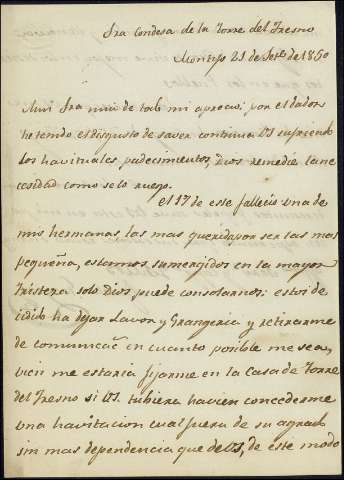 Sra Condesa de la Torre del Fresno
Montijo 21 de Setre de 1850
Mui Sra mia de todo mi aprecio: por el dador
he tenido el disgusto de saver continua VS sufriendo
los havituales padecimientos, Dios remedie la ne
cesidad como se lo ruego.
el 17 de este fallecio una de
mis hermanas, la mas querida por ser la mas
pequeña, estamos sumergidos en la mayor
tristeza solo Dios puede consolarnos: estoi de
cidido ha dejar Lavor y Grangeria y retirarme
de comunicacn en cuanto posible me sea,
vien me estaria fijarme en la Casa de Torre
del Fresno si VS. tubiera havien concederme
una havitacion cual fuera de su agrado
sin mas dependencia que de VS, de este modo